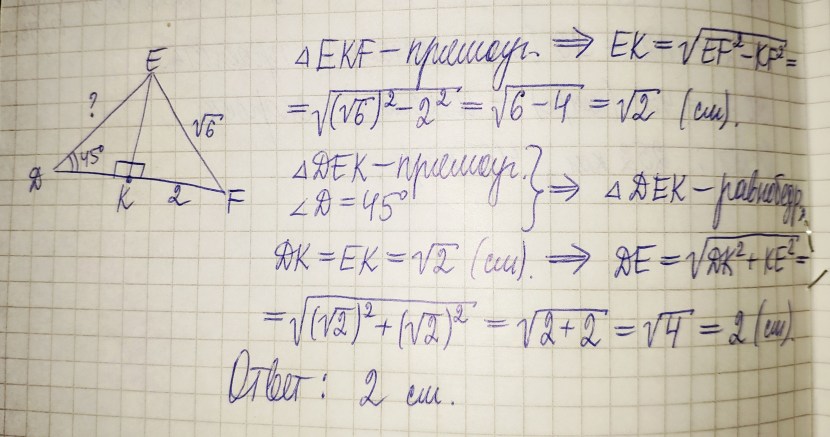 E
?
√6
45°
D
K
2
F
△EKF – прямоуг. ⇒ EK = √(EF² - KF²) =
= √((√6)² - 2²) = √(6 - 4) = √2 (см).
△DEK – прямоуг.
∠D = 45°
} ⇒ △DEK – равнобедр.,
DK = EK = √2 (см). ⇒ DE = √(DK² + KE²) =
= √((√2)² + (√2)²) = √(2 + 2) = √4 = 2 (см).
Ответ: 2 см.